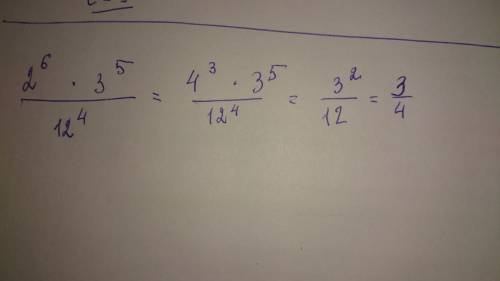 2⁶ · 3⁵ / 12⁴ = 4³ · 3⁵ / 12⁴ = 3² / 12 = 3 / 4